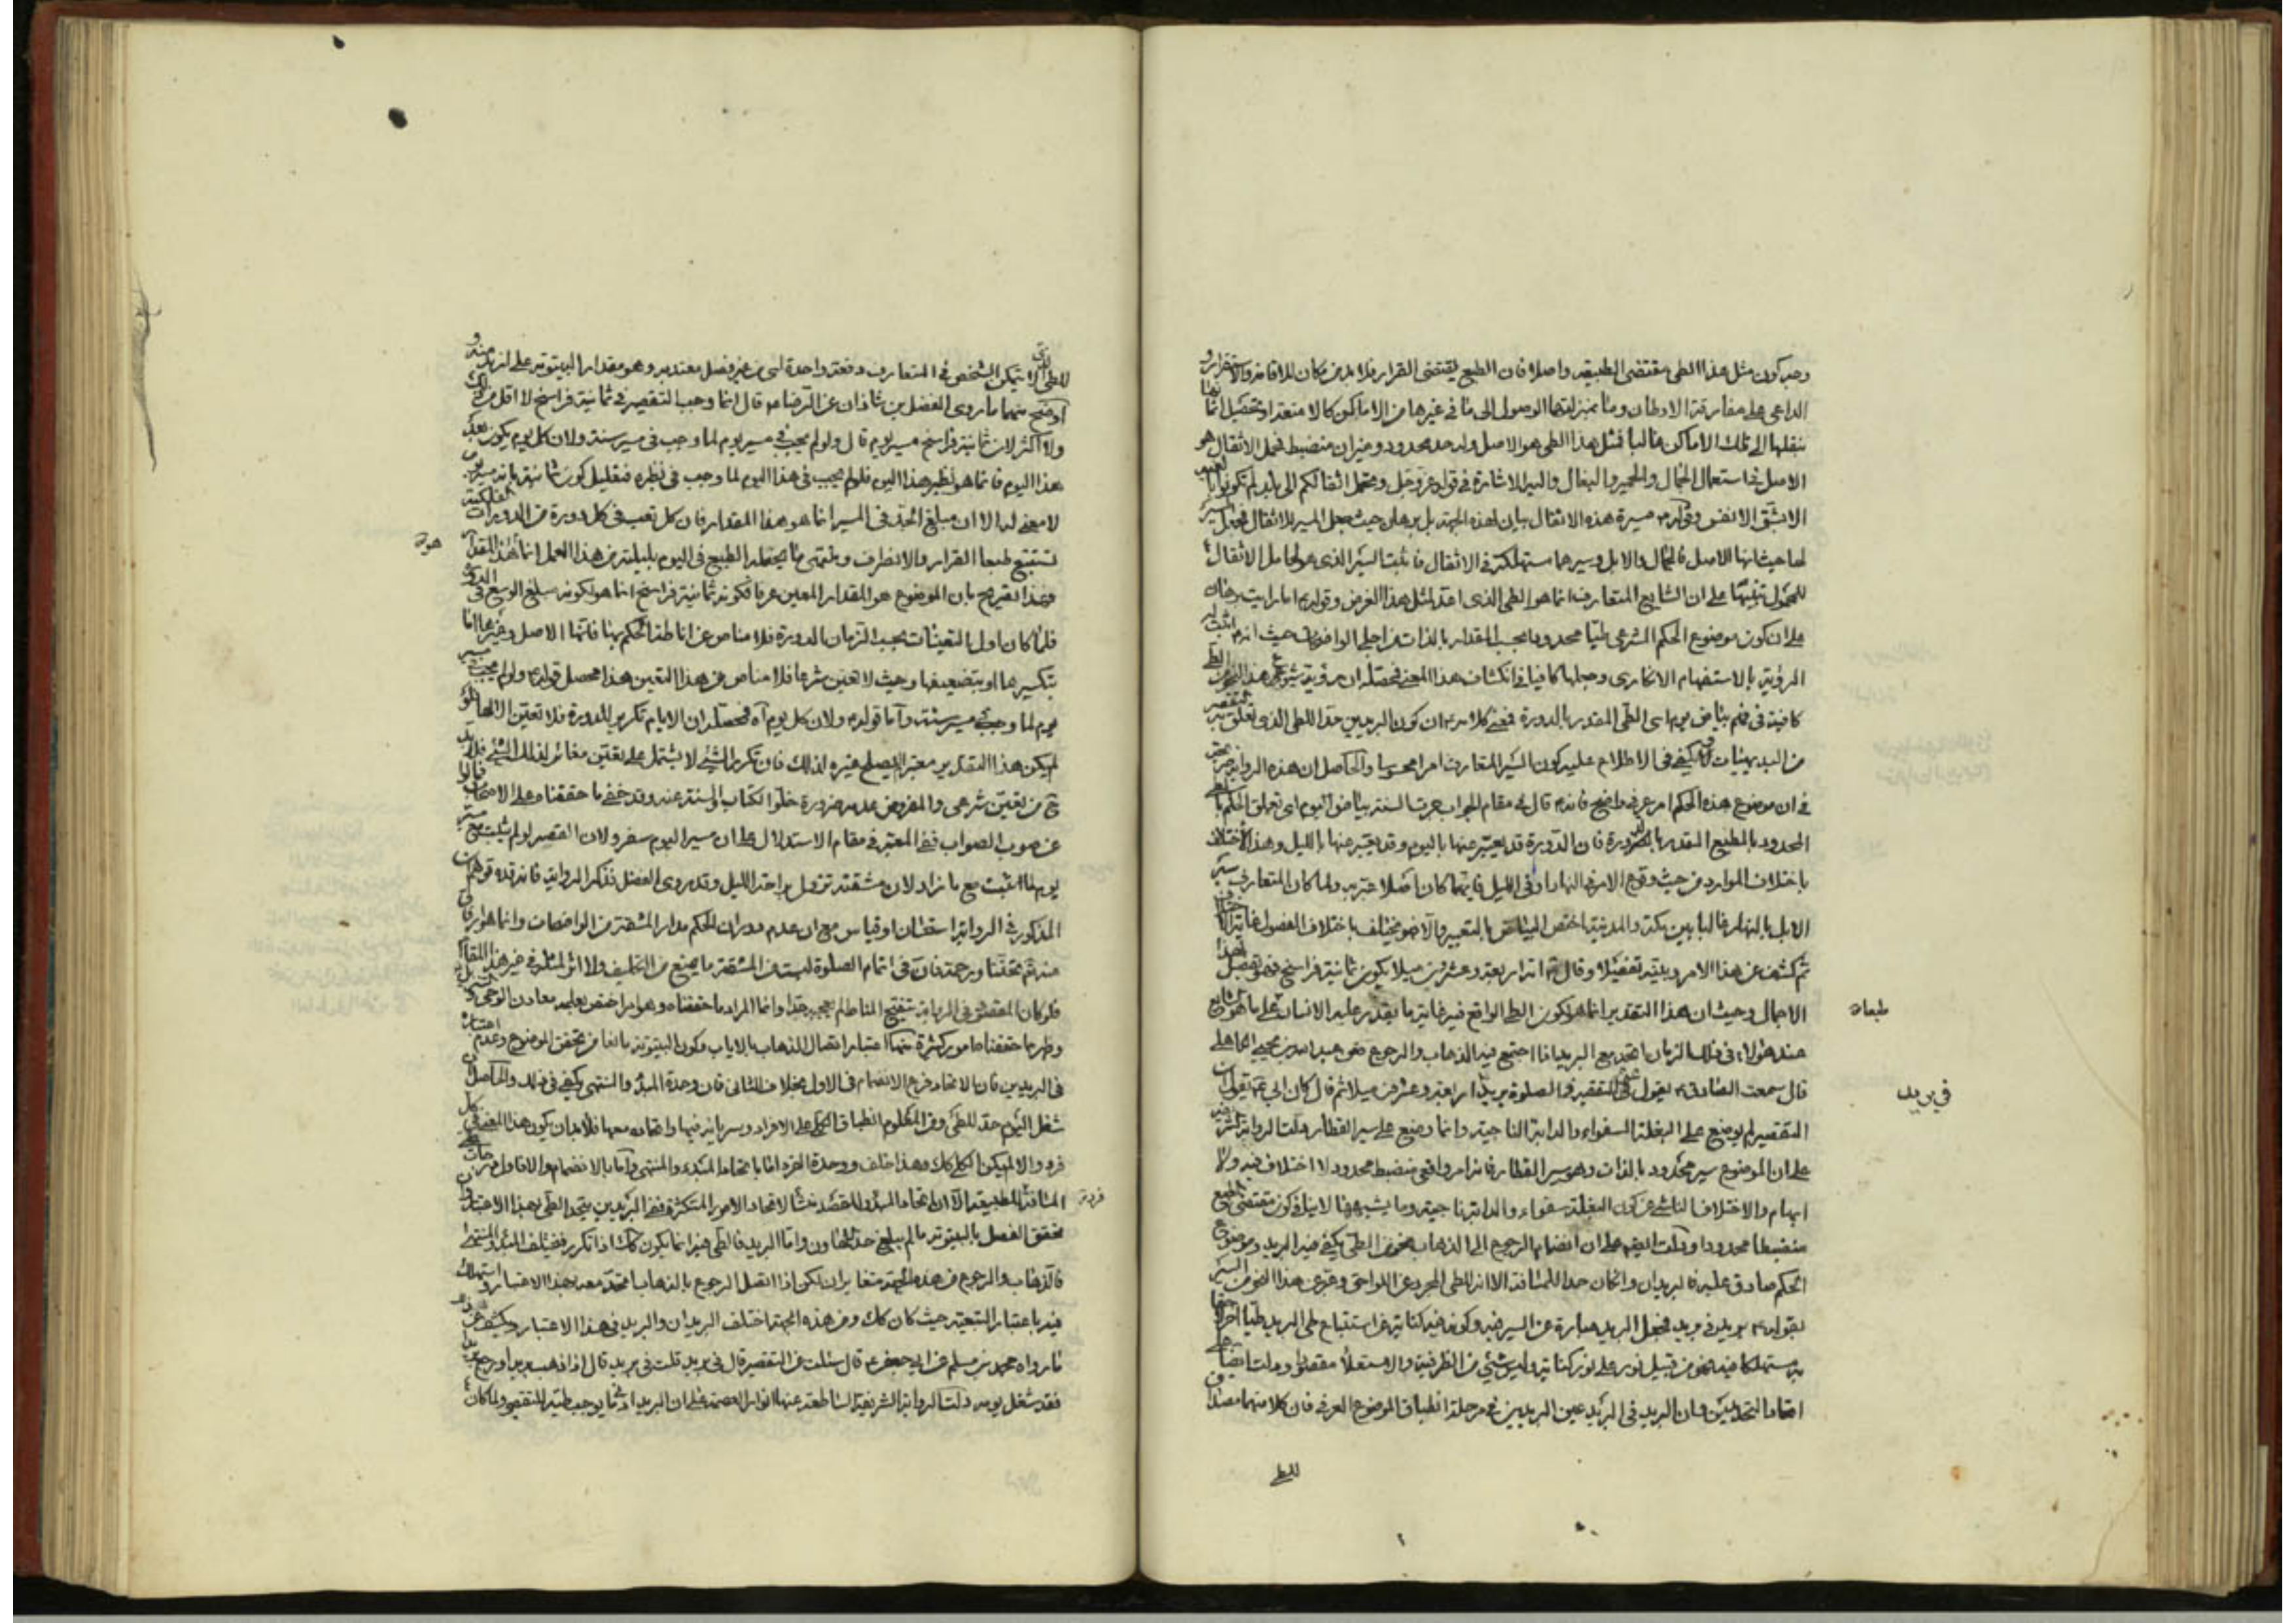 وجه كون مثل هذا الطى مقتضى الطبيعة واصلا فان الطبع يقتضى القرار فلا بد من مكان للاقامة والاستقرار و
الداعى على مفارقة الاوطان وما بمنزلتها الوصول الى ما فى غيرها من الاماكن كالامتعة او تحصيل
ينقلها الى تلك الاماكن غالبا فمثل هذا الطى هو الاصل وله حد محدود وميزان منضبط فحمل الاثقال هو
الاصل فى استعمال الجمال والحمير والبغال واليه الاشارة فى قوله عز وجل وتحمل اثقالكم الى بلد لم تكونوا بالغيه
الا بشق الانفس وقوله مسيرة هذه الاثقال بيان لهذه الجهة بل برهان حيث جعل المسير للاثقال
لها حيث انها الاصل فالجمال والابل وسيرهما مستهلكة فى الاثقال فاثبت السير الذى هو لحامل الاثقال
للمحمول تنبيها على ان الشايع المتعارف انما هو الطى الذى اعد لمثل هذا الغرض وقوله اما رايت
على ان كون موضوع الحكم الشرعى طيا محدودا بحسب المقدار بالذات من اجلى الواضحات حيث انه اثبت
الرؤية بالاستفهام الانكارى وجعلها كافيا فى انكشاف هذا المعنى فمحصله ان رؤية شيوع هذا
كافية فى فهم بياض يوم اى الطى المقدر بالدورة فمعنى كلامه ان كون البريدين حدا للطى الذى تعلق به التقصير
من البديهيات و يكفى فى الاطلاع عليه كون السير المتعارف امرا محسوسا والحاصل ان هذه الرواية
فى ان موضوع هذه الحكم امر عرفى واضح فانه قال فى مقام الجواب جرت السنة ببياض اليوم اى تعلق الحكم
المحدود بالطبع المقدر بالدورة فان الدورة قد يعبّر عنها باليوم وقد يعبّر عنها بالليل وهذا الاختلاف
باختلاف الموارد من حيث وقوع الامر فى النهار او فى الليل فايهما كان اصلا عبّر به ولما كان المتعارف سير
الابل بالنهار غالبا بين مكة والمدينة اختص البياض بالتعبير والا فهو مختلف باختلاف الفصول
ثم كشف عن هذا الامر وبينه تفصيلا وقال انه اربعة وعشرين ميلا يكون ثمانية فراسخ فهو تفصيل لهذا
الاجمال وحيث ان هذا التقدير انما هو لكون الطى الواقع فيه غاية ما يقدر عليه الانسان على ما هو الشايع
عند هؤلاء فى ذلك الزمان اتحد مع البريد اذا اجتمع فيه الذهاب والرجوع فعن عبد الله بن يحيى الكاهلى
قال سمعت الصادق ع يقول فى التقصير فى الصلوة بريد اربعة وعشرون ميلا ثم قال كان ابى ع يقول ان
التقصير لم يوضع على البغلة السفواء والدابة الناجية وانما وضع على سير القطار فدلت الرواية
على ان الموضوع سير محدود بالذات وهو سير القطار فانه امر واقعى منضبط محدود لا اختلاف فيه ولا
ابهام والاختلاف الناشى عن كون البغلة سفواء والدابة ناجية وما يشبههما لا ينافى كون مقتضى الطبع
منضبطا محدودا ودلت ايضا على ان انضمام الرجوع الى الذهاب يكفى فيه البريد وموضوع
الحكم صادق عليه فالبريدان وان كان حدا للمسافة الا انه للطى المجرد عن اللواحق وعبّر عن هذا النحو من السير
بقوله بريد فى بريد فجعل البريد عبارة عن السير فيه وكونه فيه كناية عن استتباع طى البريد طيا اخر
مستهلكا فيه نحو من قبيل نور على نور كناية وليس شئ من الظرفية والاستعلاء مقصودا ودلت ايضا على
اتحاد التحديدين وان البريد فى البريد عين البريدين فى مرحلة انطباق الموضوع العرفى فان كلا منهما مصداق
طبعا
فى بريد
للطى
للطى الذى لا يتمكن الشخص فى المتعارف دفعة واحدة اى من غير فصل معتد به وهو مقدار البيتوتة على ازيد منه و
اوضح منهما ما روى الفضل بن شاذان عن الرضا ع قال انما وجب التقصير فى ثمانية فراسخ لا اقل من ذلك
ولا اكثر لان ثمانية فراسخ مسير يوم قال ولو لم يجب فى مسير يوم لما وجب فى مسير سنة ولان كل يوم يكون بعد
هذا اليوم فانما هو نظير هذا اليوم فلو لم يجب فى هذا اليوم لما وجب فى نظيره فتعليل كون ثمانية بانه مسير يوم
لا معنى له الا ان مبلغ الحد فى المسير انما هو هذا المقدار فان كل تعب فى كل دورة من الدورات الفلكية
تستتبع طبعا القرار والانظراف ومنتهى ما يحتمله الطبع فى اليوم بليلته من هذا العمل انما هو هذا المقدار
فهذا تصريح بان الموضوع هو المقدار المعين عرفا فكونه ثمانية فراسخ انما هو لكونه مبلغ الوسع فى الدورة
فلما كان اول التعينات بحسب الزمان بالدورة فلا مناص عن اناطة الحكم بها فانها الاصل وغيرها اما
بتكسيرها او بتضعيفها وحيث لا تعين شرعا فلا مناص من هذا التعين هذا محصل قوله ولو لم يجب فى مسير
يوم لما وجب فى مسير سنة واما قوله ولان كل يوم آه فمحصله ان الايام تكرير للدورة فلا تعين الا لها فلو
لم يكن هذا التقدير معتبرا لم يصلح غيره لذلك فان تكرر الشئ لا يشتمل على تعين مغاير لذلك الشئ فلا بد
ح من تعين شرعى والمفروض عدمه ضرورة خلو الكتاب والسنة عنه وقد خفى ما حققناه على الاصحاب
عن صوب الصواب ففى المعتبر فى مقام الاستدلال على ان مسير اليوم سفر ولان القصر لو لم يثبت مع
يوم لما ثبت مع ما زاد لان مشقته تزول براحة الليل وقد روى الفضل فذكر الرواية فانه قده توهم ان
المذكور فى الرواية استحسان او قياس مع ان عدم دوران الحكم مدار المشقة من الواضحات وانما هو ارفاق
منه تحننا ورحمة فان فى اتمام الصلوة ليست من المشقة ما يمنع من التكليف ولا اثر لمثله فى غير هذا المقام
فلو كان المقصود فى الرواية تنقيح المناط لم يصح جدا وانما المراد ما حققناه وهو امر اختص بعلمه معادن الوحى و
وظهر مما حققناه امور كثيرة منها اعتبار اتصال الذهاب بالاياب وكون البيتوتة مانعا من تحقق الموضوع وعدم اعتباره
فى البريدين فان الاتحاد فرع الانضمام فى الاول بخلاف الثانى فان وحدة المبدء والمنتهى يكفى فى ذلك والحاصل ان
شغل اليوم حد للطى ومن المعلوم انطباق الكلى على الافراد وسريانه فيها واتحاده معها فلا بد ان يكون هذا المعنى فى كل
فرد والا لم يكن الكلى كليا وهذا خلف ووحدة الفرد اما باتحاد المبدء والمنتهى واما بالانضمام والاقاول
المنافية للطبيعة الا ان اتحاد المبدء والمقصد منشأ لاتحاد الامور المتكثرة ففى البريدين يتحد الطى بهذا الاعتبار وان
تحقق الفصل بالبيتوتة ما لم يبلغ حد التهاون واما البريد فالطى فيه انما يكون كذلك اذا تكرر فيختلف المبدء والمنتهى
فالذهاب والرجوع من هذه الجهة متغايران لكن اذا اتصل الرجوع بالذهاب اتحد معه بهذا الاعتبار واستهلك
فيه باعتبار التبعية حيث كان كك ومن هذه الجهة اختلف البريدان والبريد فى هذا الاعتبار وكشف عن
ما رواه محمد بن مسلم عن ابى جعفر ع قال سئلت عن التقصير قال فى بريد قلت فى بريد قال اذا ذهب بريدا ورجع بريدا
فقد شغل يومه دلت الرواية الشريفة الساطعة عنها انوار العصمة على ان البريد انما يوجب طيه التقصير ولو كان
هو
فرد